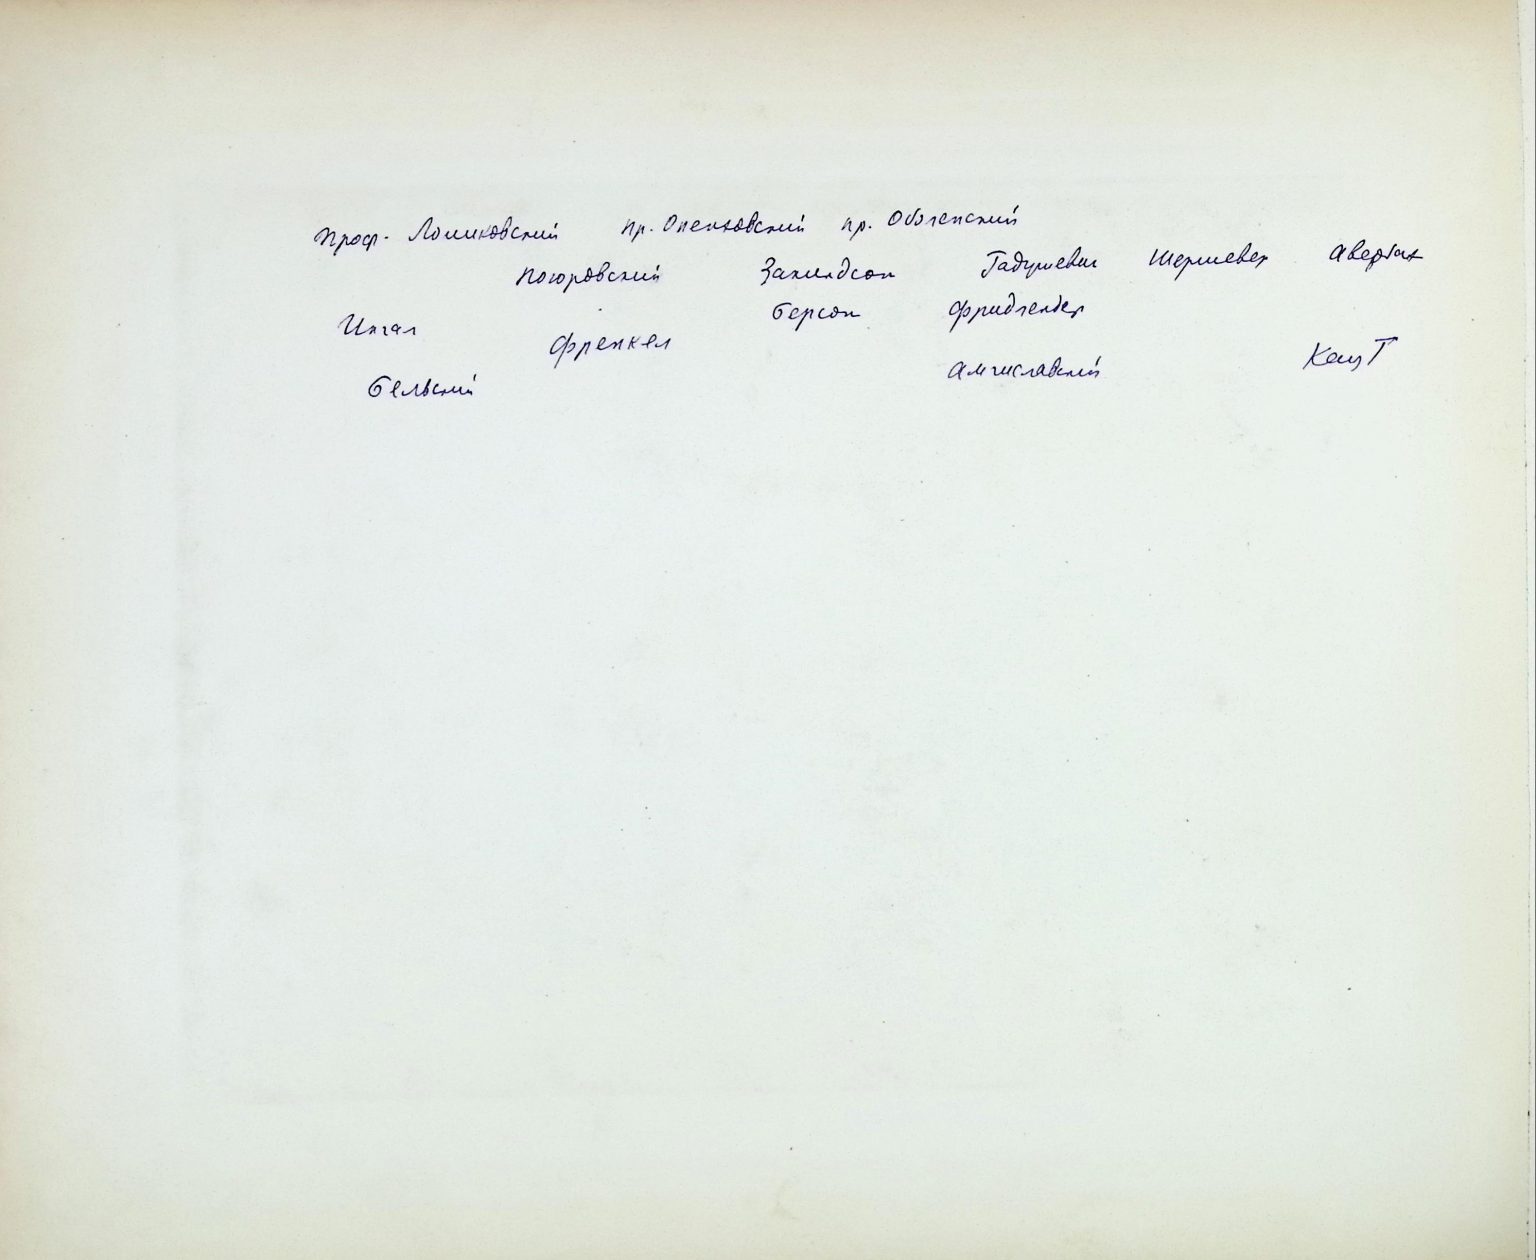 Проф. Лошиковский пр. Опенховский пр. Оболенский
Поюровский Закиндсон Гадушевич Шершевер Авербах
Ингал Берсон Фридлендер
Френкел
Бельский Амчиславский Кац Т